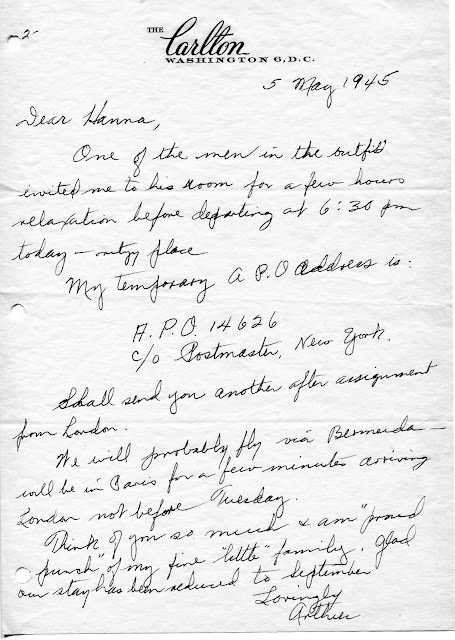 -2-
THE Carlton
WASHINGTON 6, D.C.
5 May 1945
Dear Hanna,
One of the men in the outfit
invited me to his room for a few hours
relaxation before departing at 6:30 pm
today — ritzy place
My temporary A P.O address is:
A.P.O. 14626
c/o Postmaster, New York.
Shall send you another after assignment
from London.
We will probably fly via Bermuda —
will be in Paris for a few minutes arriving
London not before Tuesday.
Think of you so much & am "proud
punch" of my fine "little" family. Glad
our stay has been reduced to September
Lovingly
Arthur